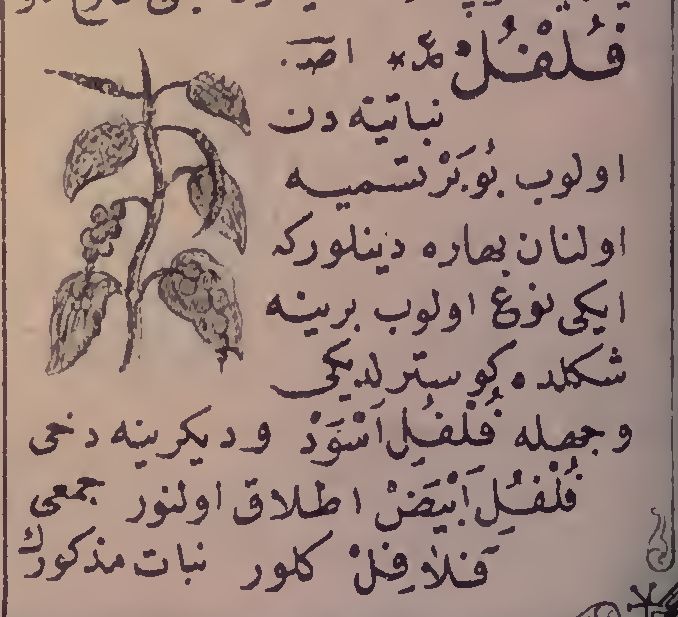 فُلْفُلْ عر * اصـ
نباتيه دن
اولوب بُوبَرْ تسميه
اولنان بهاره دينلوركه
ايكى نوع اولوب برينه
شكلده كوسترلديكى
وجهله فُلْفُلِ اَسْوَدْ وديكرينه دخى
فُلْفُلِ اَبْيَضْ اطلاق اولنور جمعى
فَلَافِلْ كلور نبات مذكورك